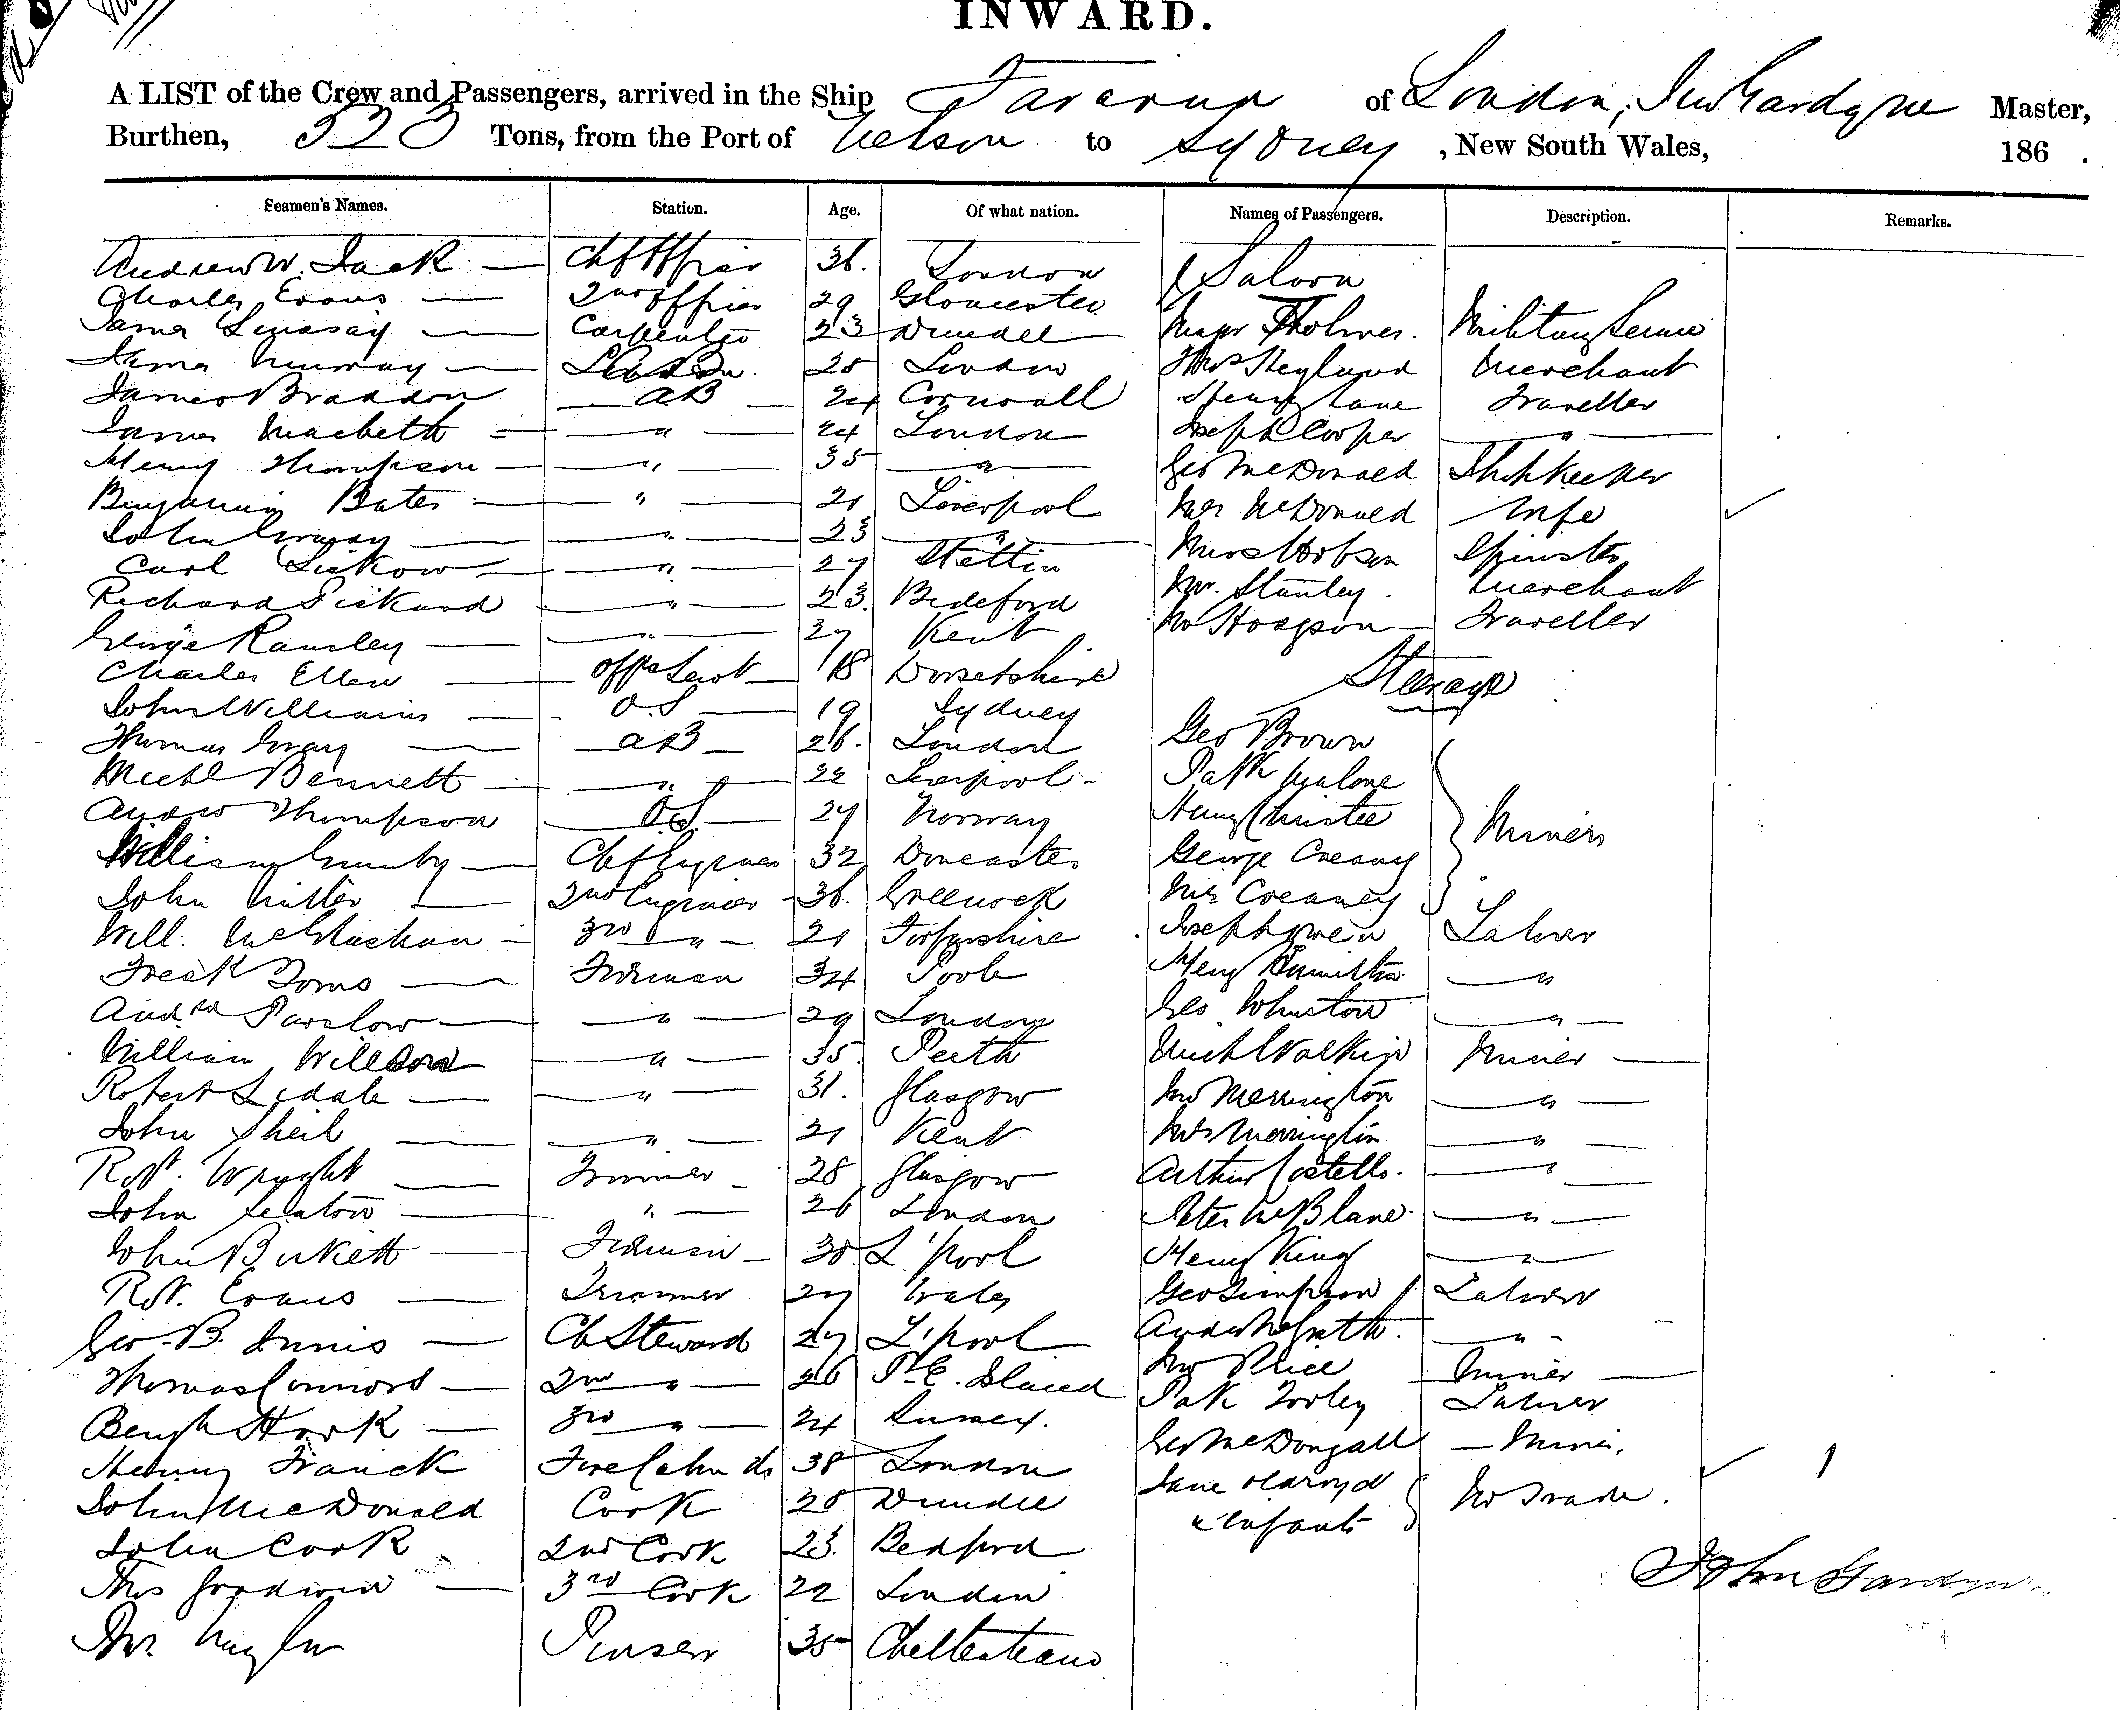 INWARD.
A LIST of the Crew and Passengers, arrived in the Ship of London, Jno Gardyne Master,
Burthen, 523 Tons, from the Port of Nelson to Sydney, New South Wales, 186 .
Seamen's Names. Station. Age. Of what nation. Names of Passengers. Description. Remarks.
Andrew W. Jack Chf Officer 36. London Saloon
Charles Evans 2nd Officer 29 Gloucester
James Lindsay Carpenter 23 Dundee Major Holmes. Military Service
James Murray 28 London Thos Merchant
James Braddon AB 24 Cornwall Henry Lane Traveller
James Macbeth " 24 London Joseph Cooper "
Henry Thompson " 35 " Geo McDonald Shopkeeper
Benjamin Bates " 21 Liverpool Mrs McDonald Wife
John " 23 " Miss Hobson Spinster
Carl " 27 Stettin Mr. Stanley. Merchant
Richard Pickard " 23. Bideford Mr Hodgson Traveller
George Ransley " 27 Kent
Charles Ellen Offrs Servt 18 Dorsetshire Steerage
John Williams O.S 19 Sydney
Thomas Gray AB 26. London Geo Brown
Michl Bennett " 22 Liverpool Patk Malone
Andrew Thompson OS 27 Norway Henry Christie Miners
William Chf Engineer 32 Doncaster George Creaney
John Miller 2nd Engineer 36. Greenock Mrs Creaney
Will. McGlashan 3rd " 21 Forfarshire Joseph Labourer
Fredk Toms Fireman 34 Poole Henry Hamilton "
Andrw Parslow " 29 London Geo Johnston "
William Willson " 35. Perth Michl Miner
Robert " 31. Glasgow Jno Merrington "
John Sheil " 21 Kent Mrs Merrington "
Robt. Wright Trimmer 28 Glasgow Arthur Costello. "
John Seaton " 26 London Peter McBlane "
John Birkett Fireman 30 L'pool Henry King "
Robt. Evans Trimmer 27 Wales Geo Simpson Labourer
Geo. B. Innis Ch Steward 27 L'pool Andw "
Thomas Connors 2nd " 26 P.E. Island Jno Price Miner
Benjn Hook 3rd " 24 Surrey. Patk Tooley Labourer
Henry Franck Fore Cabin do 38 London Geo McDougall Miner.
John McDonald Cook 28 Dundee Jane No Trade.
& infant
John Cook 2nd Cook 23. Bedford
Thos Goodwin 3rd Cook 22 London John Gardyne
Jno. Naylor Purser 35 Cheltenham